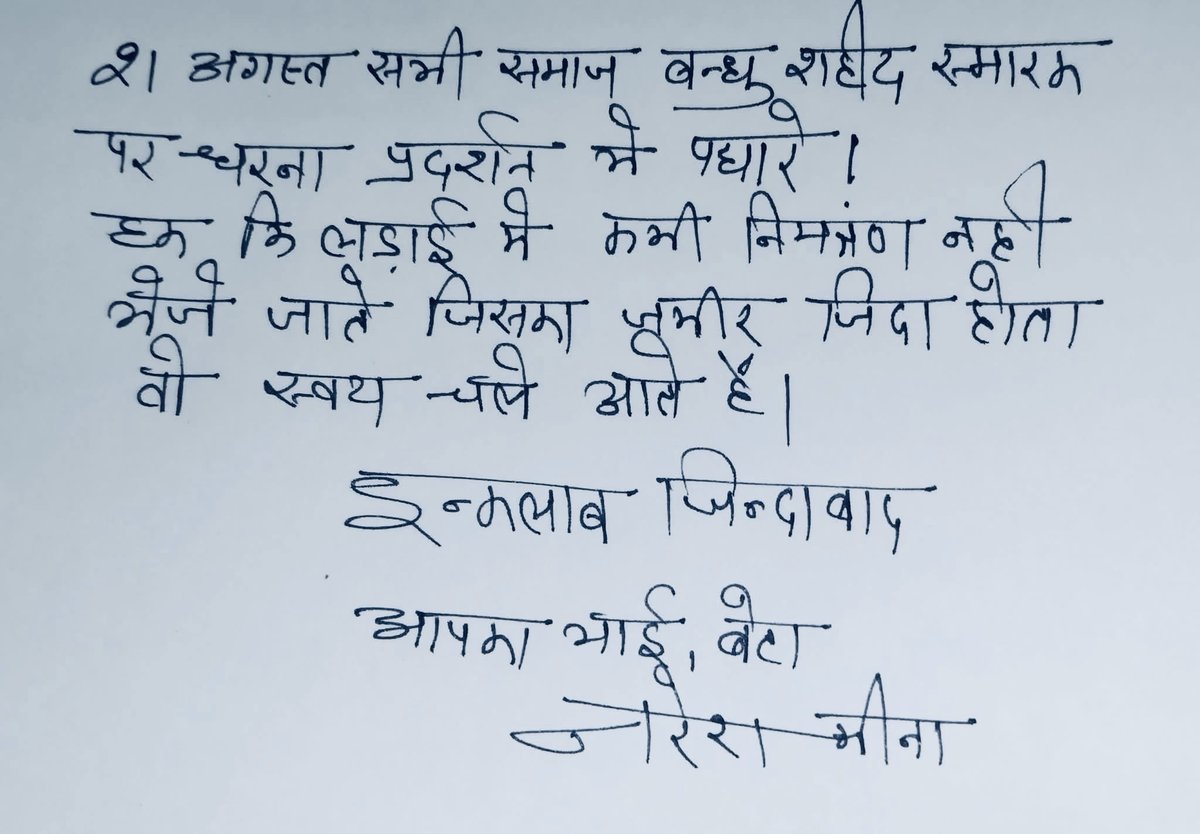 २१ अगस्त सभी समाज बन्धु शहीद स्मारक
पर धरना प्रदर्शन मे पधारे ।
हक कि लड़ाई मे कभी निमंत्रण नही
भेजे जाते जिसका जमीर जिदा होता
वो स्वय चले आते हैं।
इन्कलाब जिन्दाबाद
आपका भाई, बेटा
नरेश मीना